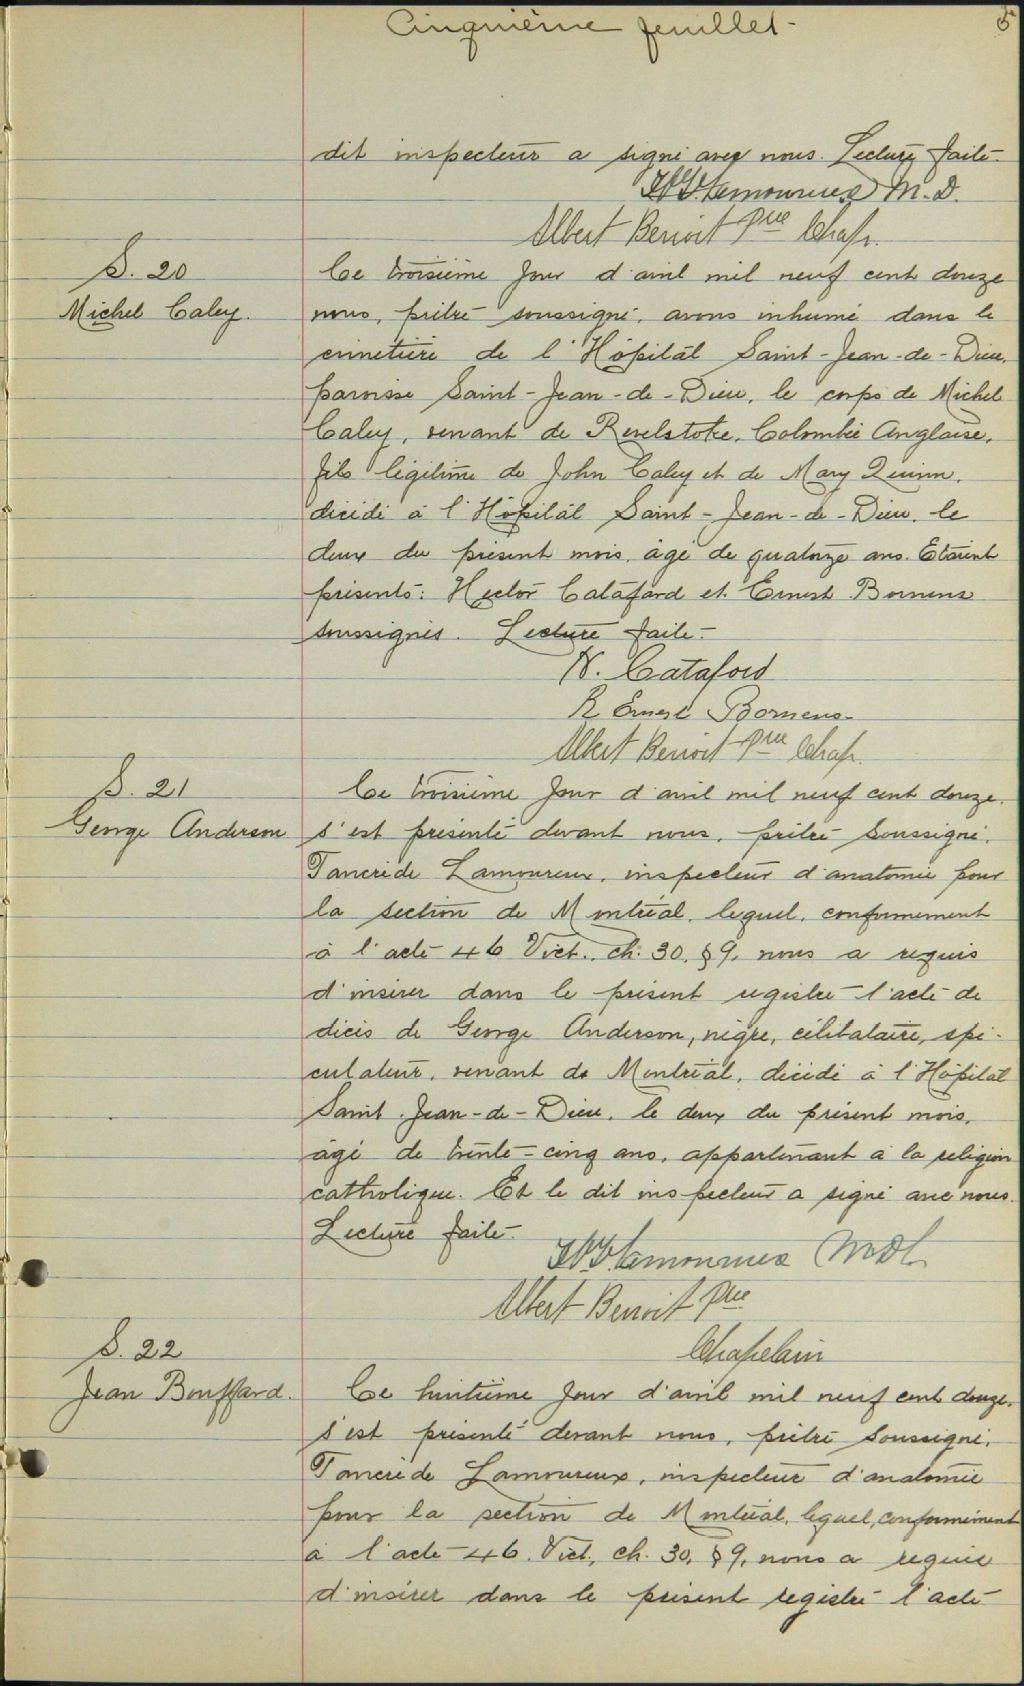 Cinquième feuillet - 5
dit inspecteur a signé avec nous. Lecture faite.
Lamoureux M.D.
Albert Benoit ptre Chap.
S. 20
Michel Caley.
Ce troisième jour d'avril mil neuf cent douze
nous, prêtre soussigné, avons inhumé dans le
cimetière de l'Hôpital Saint-Jean-de-Dieu,
paroisse Saint-Jean-de-Dieu, le corps de Michel
Caley, venant de Revelstoke, Colombie Anglaise,
fils légitime de John Caley et de Mary Quinn,
décédé à l'Hôpital Saint-Jean-de-Dieu, le
deux du présent mois, âgé de quatorze ans. Etaient
présents: Hector Catafard et Ernest Bornens
soussignés. Lecture faite.
H. Cataford
R Ernest Bornens
Albert Benoit ptre Chap.
S. 21
George Anderson
Ce troisième jour d'avril mil neuf cent douze,
s'est présenté devant nous, prêtre soussigné,
Tancrède Lamoureux, inspecteur d'anatomie pour
la section de Montréal, lequel, conformément
à l'acte 46 Vict., ch. 30, § 9, nous a requis
d'insérer dans le présent registre l'acte de
décès de George Anderson, nègre, célibataire, spé-
culateur, venant de Montréal, décédé à l'Hôpital
Saint-Jean-de-Dieu, le deux du présent mois,
âgé de trente-cinq ans, appartenant à la religion
catholique. Et le dit inspecteur a signé avec nous.
Lecture faite.
Lamoureux
Albert Benoit ptre
Chapelain
S. 22
Jean Bouffard.
Ce huitième jour d'avril mil neuf cent douze,
s'est présenté devant nous, prêtre soussigné,
Tancrède Lamoureux, inspecteur d'anatomie
pour la section de Montréal, lequel, conformément
à l'acte 46. Vict., ch. 30, § 9, nous a requis
d'insérer dans le présent registre l'acte